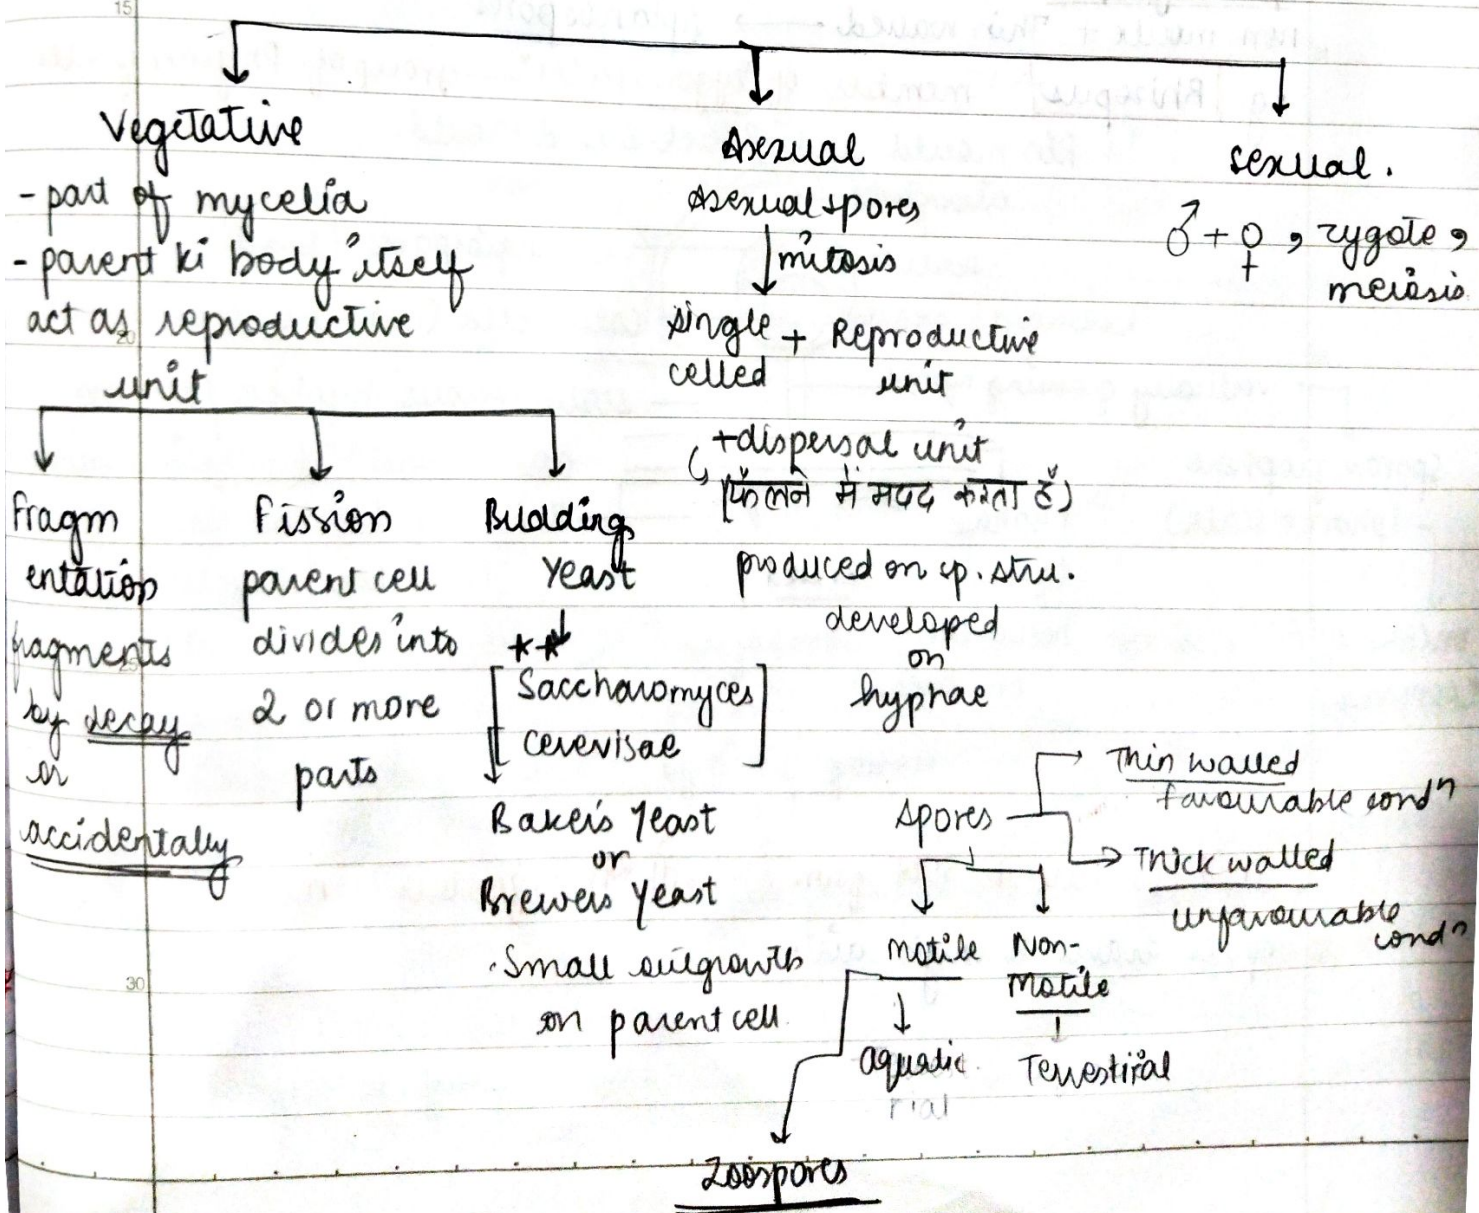 15
Vegetative
- part of mycelia
- parent ki body itself
act as reproductive
unit
Fragm
entation
fragments
by decay
or
accidentally
Fission
parent cell
divides into
2 or more
parts
Budding
Yeast
**
[Saccharomyces
cerevisae]
Baker's Yeast
or
Brewers Yeast
.Small outgrowth
on parent cell
Asexual
Asexual spores
mitosis
single celled + Reproductive unit
+dispersal unit
(फैलने में मदद करता है)
produced on sp. stru.
developed
on
hyphae
spores
Thin walled
favourable condn
Thick walled
unfavourable
condn
motile
aquatic
rial
Zoospores
Non-
Motile
Terrestiral
sexual.
♂ + ♀, zygote,
meiosis
20
25
30